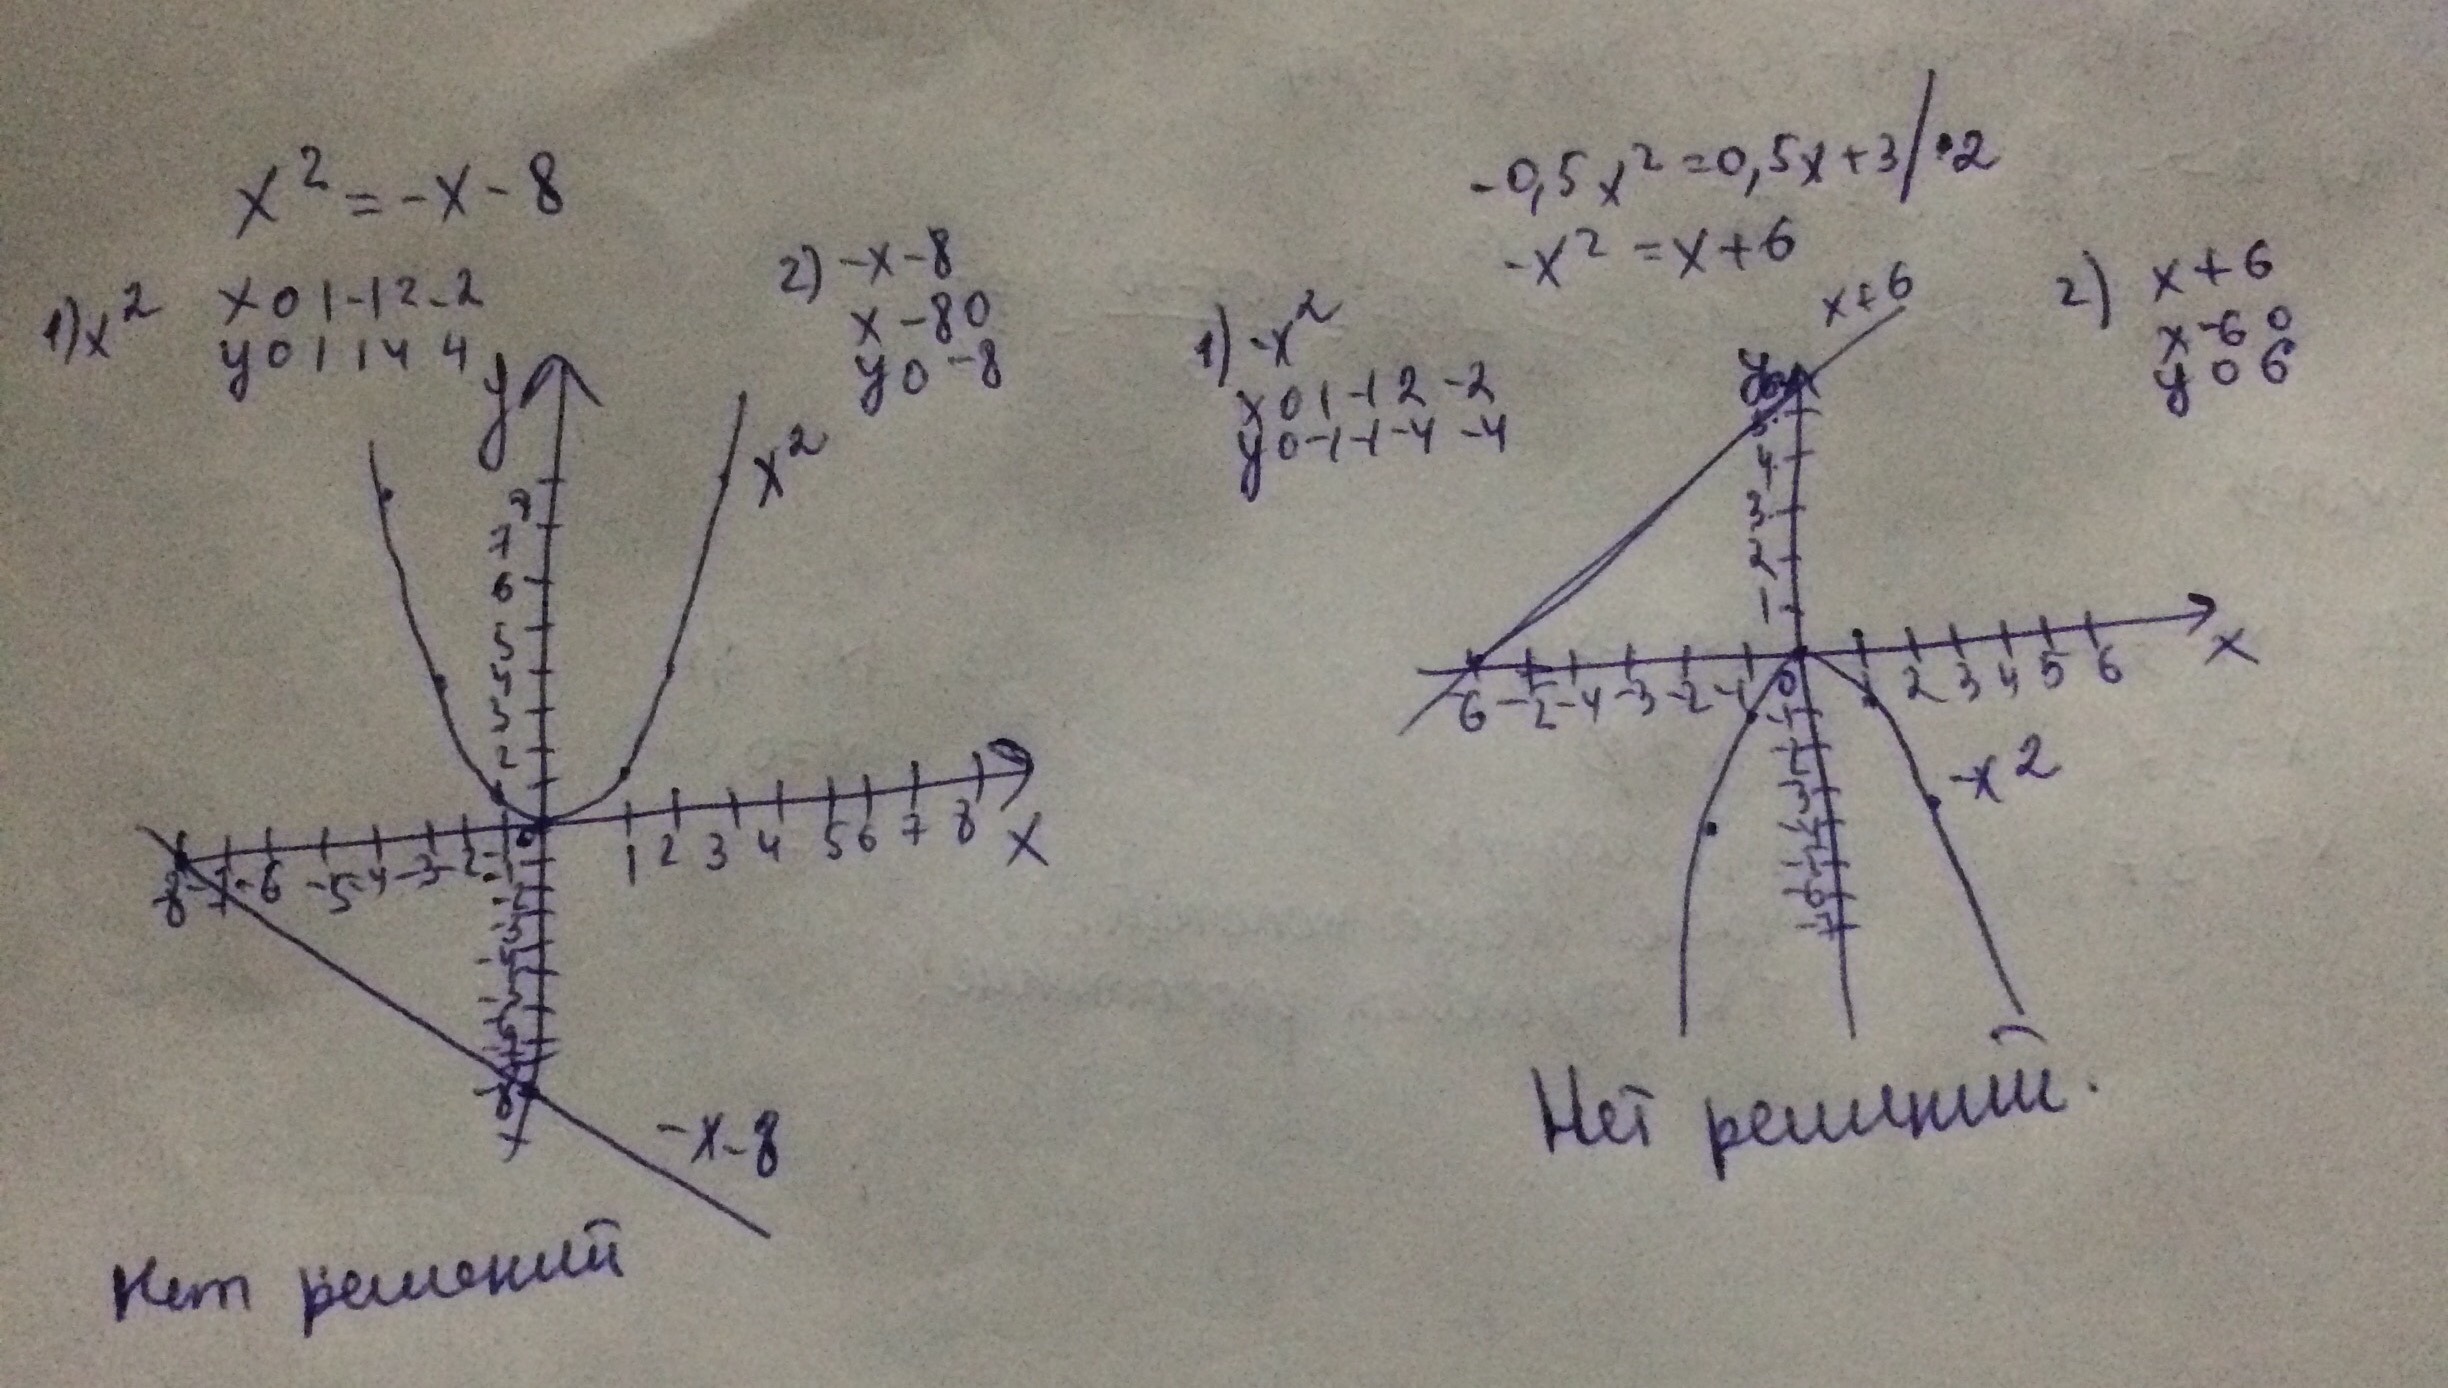 x² = -x - 8
1) x²
x 0 1 -1 2 -2
y 0 1 1 4 4
2) -x - 8
x -8 0
y 0 -8
y
x²
7
6
5
3
2
-8 -7 -6 -5 -4 -3 -2 -1 0 1 2 3 4 5 6 7 8
x
-8
-x-8
Нет решений
-0,5x² = 0,5x + 3 / •2
-x² = x + 6
1) -x²
x 0 1 -1 2 -2
y 0 -1 -1 -4 -4
2) x + 6
x -6 0
y 0 6
x+6
y
5
4
3
2
1
-6 -5 -4 -3 -2 -1 0 1 2 3 4 5 6
x
-1
-2
-3
-4
-5
-6
-7
-x²
Нет решений.